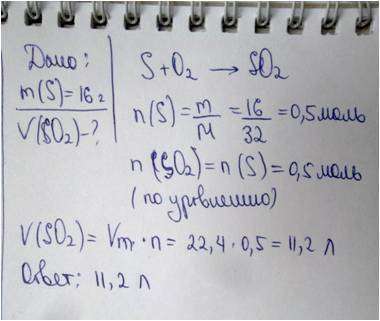 Дано:
m(S)=16г
V(SO₂)-?
S+O₂ → SO₂
n(S)=m/M=16/32=0,5моль
n(SO₂)=n(S)=0,5моль
(по уравнению)
V(SO₂)=Vm·n=22,4·0,5=11,2 л
Ответ: 11,2 л